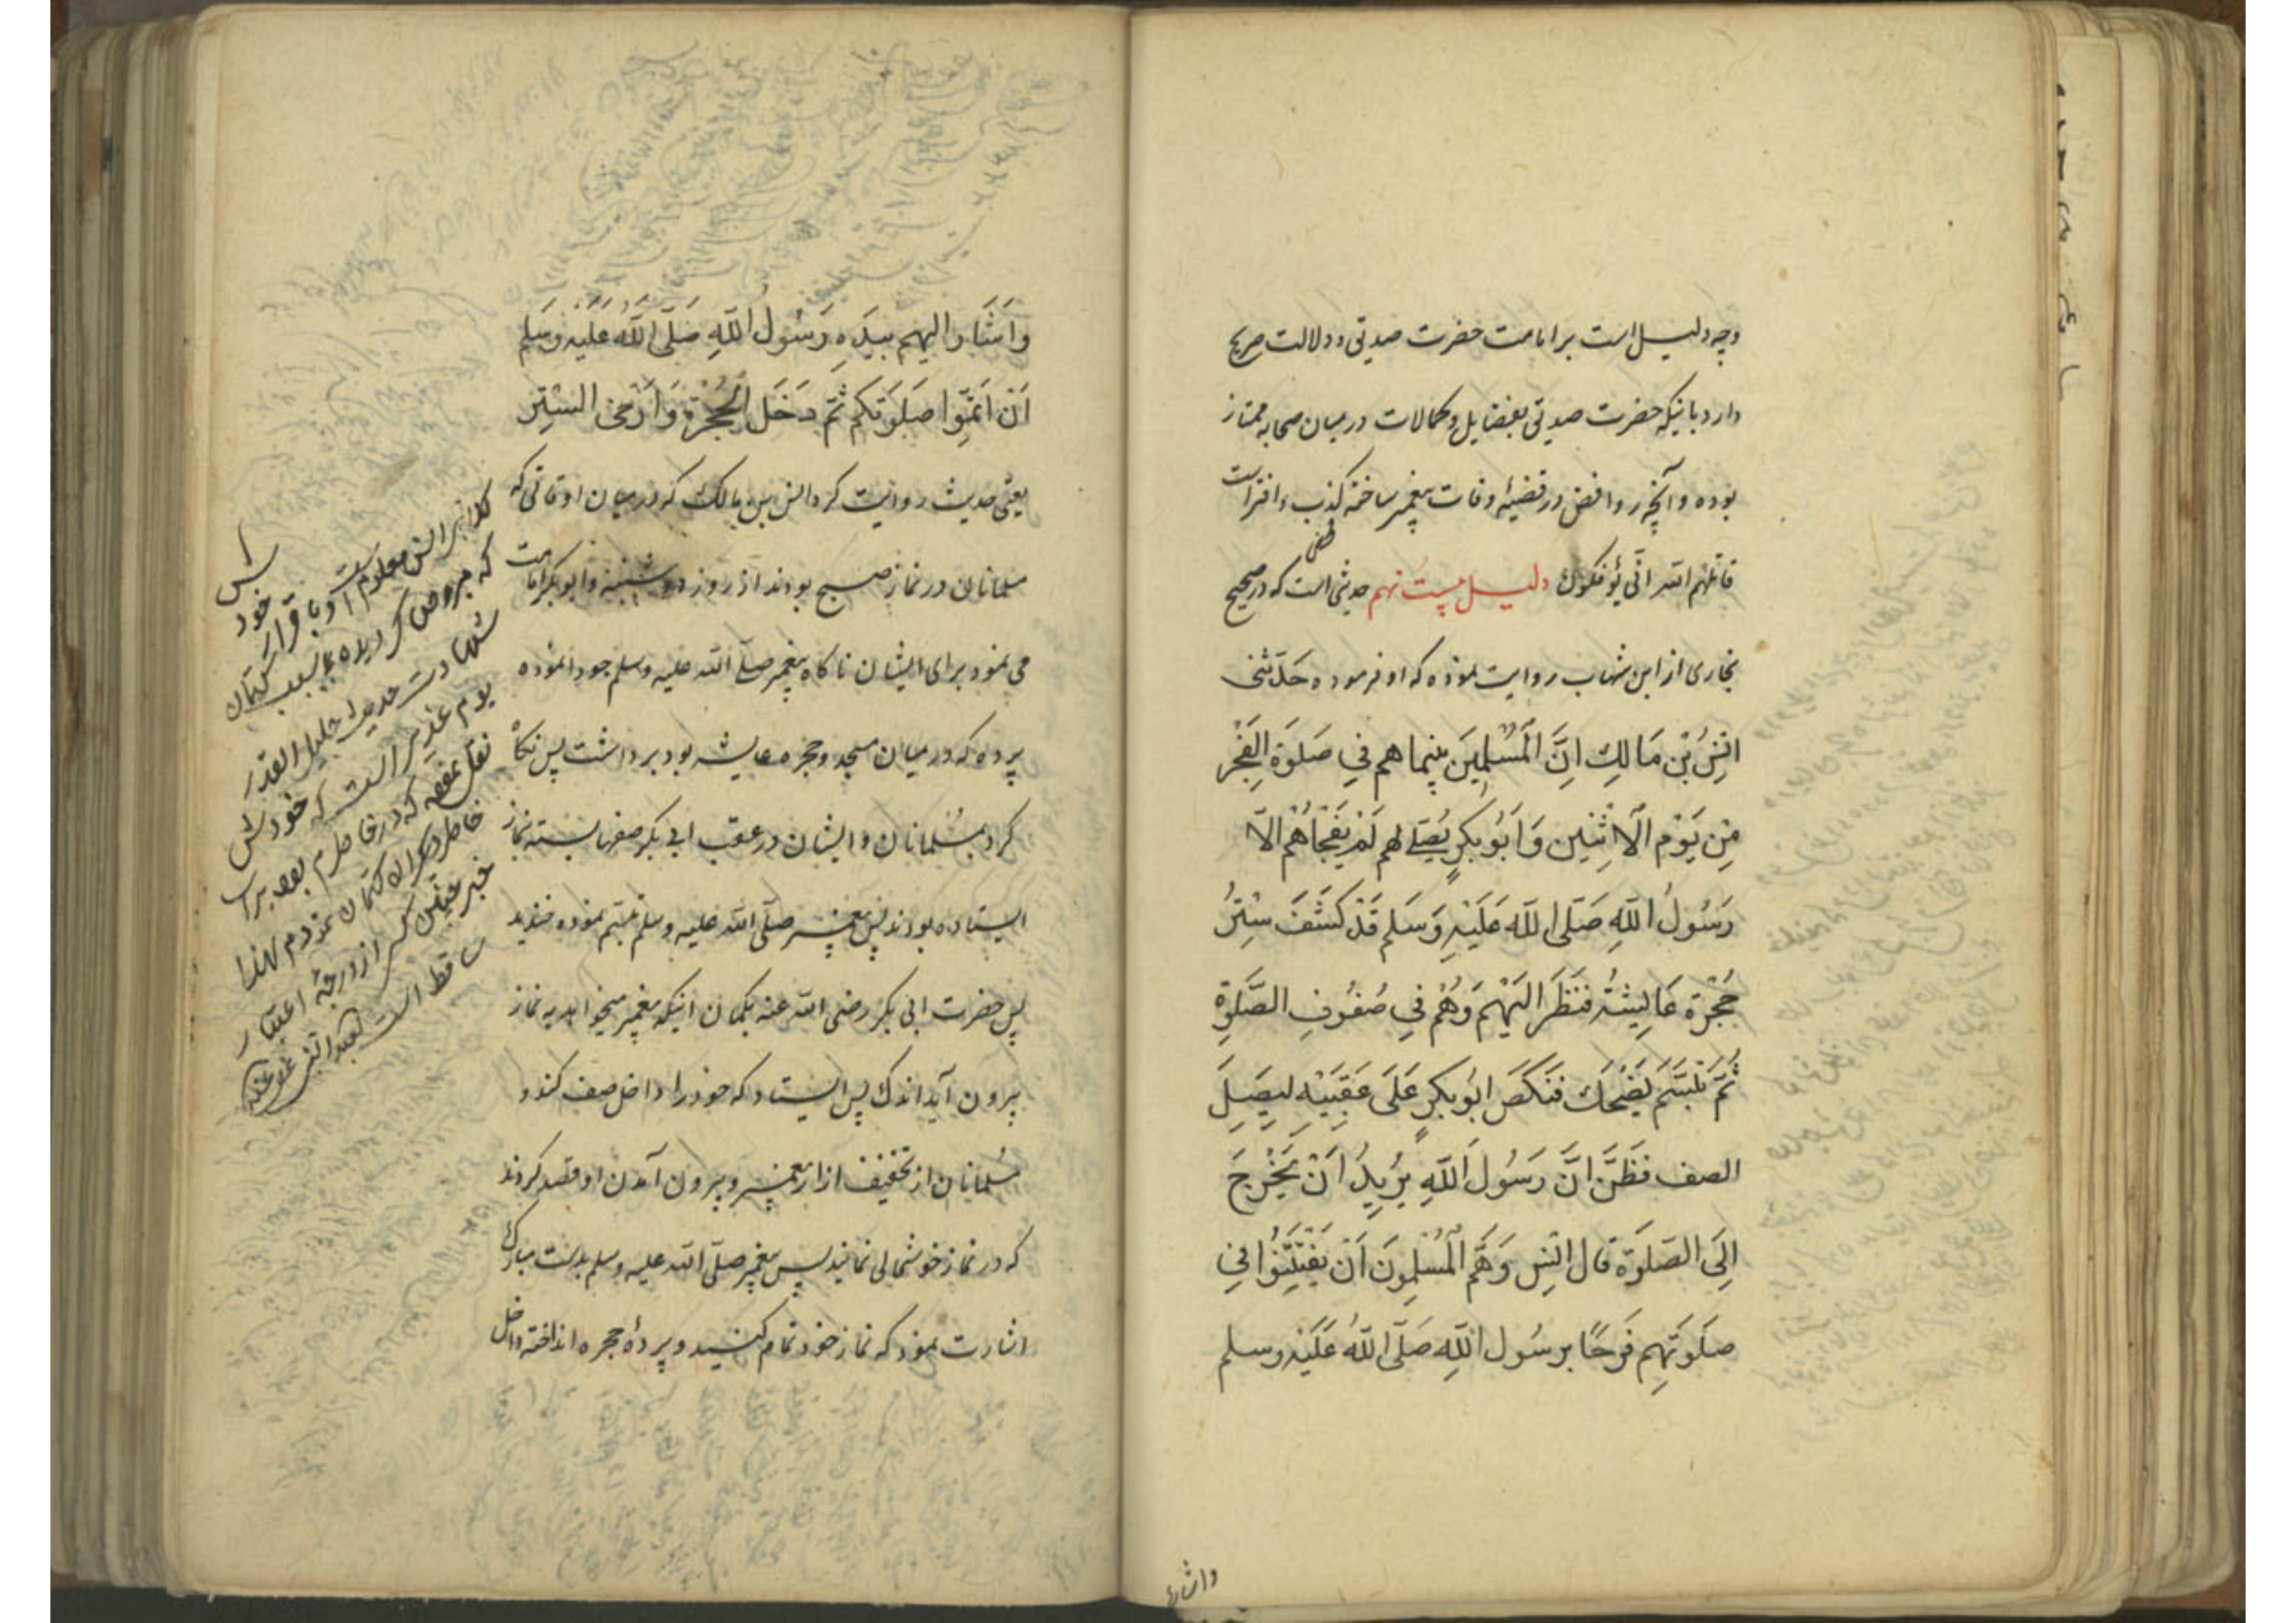 وجه دلیل است بر امامت حضرت صدیق و دلالت صریح
دارد باینکه حضرت صدیق بفضایل و کمالات در میان صحابه ممتاز
بوده و آنچه روافض در قضیهٔ وفات پیغمبر ساخته کذب و افتراست
قاتلهم الله انّی یؤفکون دلیل بیست نهم حدیثی است که در صحیح
بخاری از ابن شهاب روایت نموده که او فرموده حَدَّثنی
انَسُ بْن مَالِكِ اِنَّ الْمُسْلِمِینَ بینما هم فِي صَلوَة الفَجْرِ
مِن یَوْم الْاِثْنِین وَاَبُوبکرٍ یُصَلّے لهم لَمْ یَفْجَأهُمْ الاّ
رَسُولُ اللّهِ صَلّی اللّه عَلَیْهِ وَسَلم قَدْ کَشَفَ سِتْرَ
حُجْرَة عَایِشَة فَنَظَرَ الَیْهِمْ وَهُمْ فِي صُفُوفِ الصَّلوةِ
ثُمَّ تَبَسَّمَ یَضْحَك فَنَکَصَ ابُوبکرٍ عَلَی عَقِبَیْهِ لیَصِلَ
الصف فَظَنَّ انَّ رَسُولَ اللّهِ یُرِیدُ اَنْ یَخْرُجَ
اِلَی الصَلوَة قَال انَس وَهَمَّ الْمُسْلِمونَ اَنْ یَفْتَتِنُوا فِي
صَلوَتِهِم فَرَحًا برسُول اللّهِ صَلّی اللّهُ عَلَیْهِ وسلم
واشار
وَاَشَار الیهم بیَدِهِ رَسُولُ اللّهِ صَلَّی اللّهُ عَلَیْهِ وَسَلم
اَنْ اَتِمُّوا صَلوَتَکم ثُمّ دَخَل الْحُجْرَة وَاَرْخی السِتْر
یعنی حدیث روایت کرد انس بن مالک که در میان اوقاتی که
مسلمانان در نماز صبح بودند از روز دوشنبه و ابوبکر امامت
می نمود برای ایشان ناکاه پیغمبر صلّی الله علیه وسلم
پرده که در میان مسجد و حجره عایشه بود برداشت پس نگاه
کرد بمسلمانان و ایشان در عقب ابی بکر صفها بسته نماز
ایستاده بودند پس پیغمبر صلّی الله علیه وسلم تبسّم نموده خندید
پس حضرت ابی بکر رضی الله عنه بکمان اینکه پیغمبر میخواهد به نماز
بیرون آید اندک پس ایستاد که خود را داخل صف کند و
مسلمانان از تخفیف ازار پیغمبر و بیرون آمدن او قصد کردند
که در نماز خوشحالی نمایند پس پیغمبر صلّی الله علیه وسلم بدست مبارک
اشارت نمود که نماز خود تمام کنید و پردهٔ حجره انداخته داخل
کلا خبر انس معلوم است
که مبروص کردیده بسبب کتمان
شهادت حدیث جلیل القدر
یوم غدیر است که خودش
نقل نموده که در خاطرم بود برای
خاطر دیگران کتمان نمودم لهذا
خبر چنین کس از درجهٔ اعتبار
ساقط است